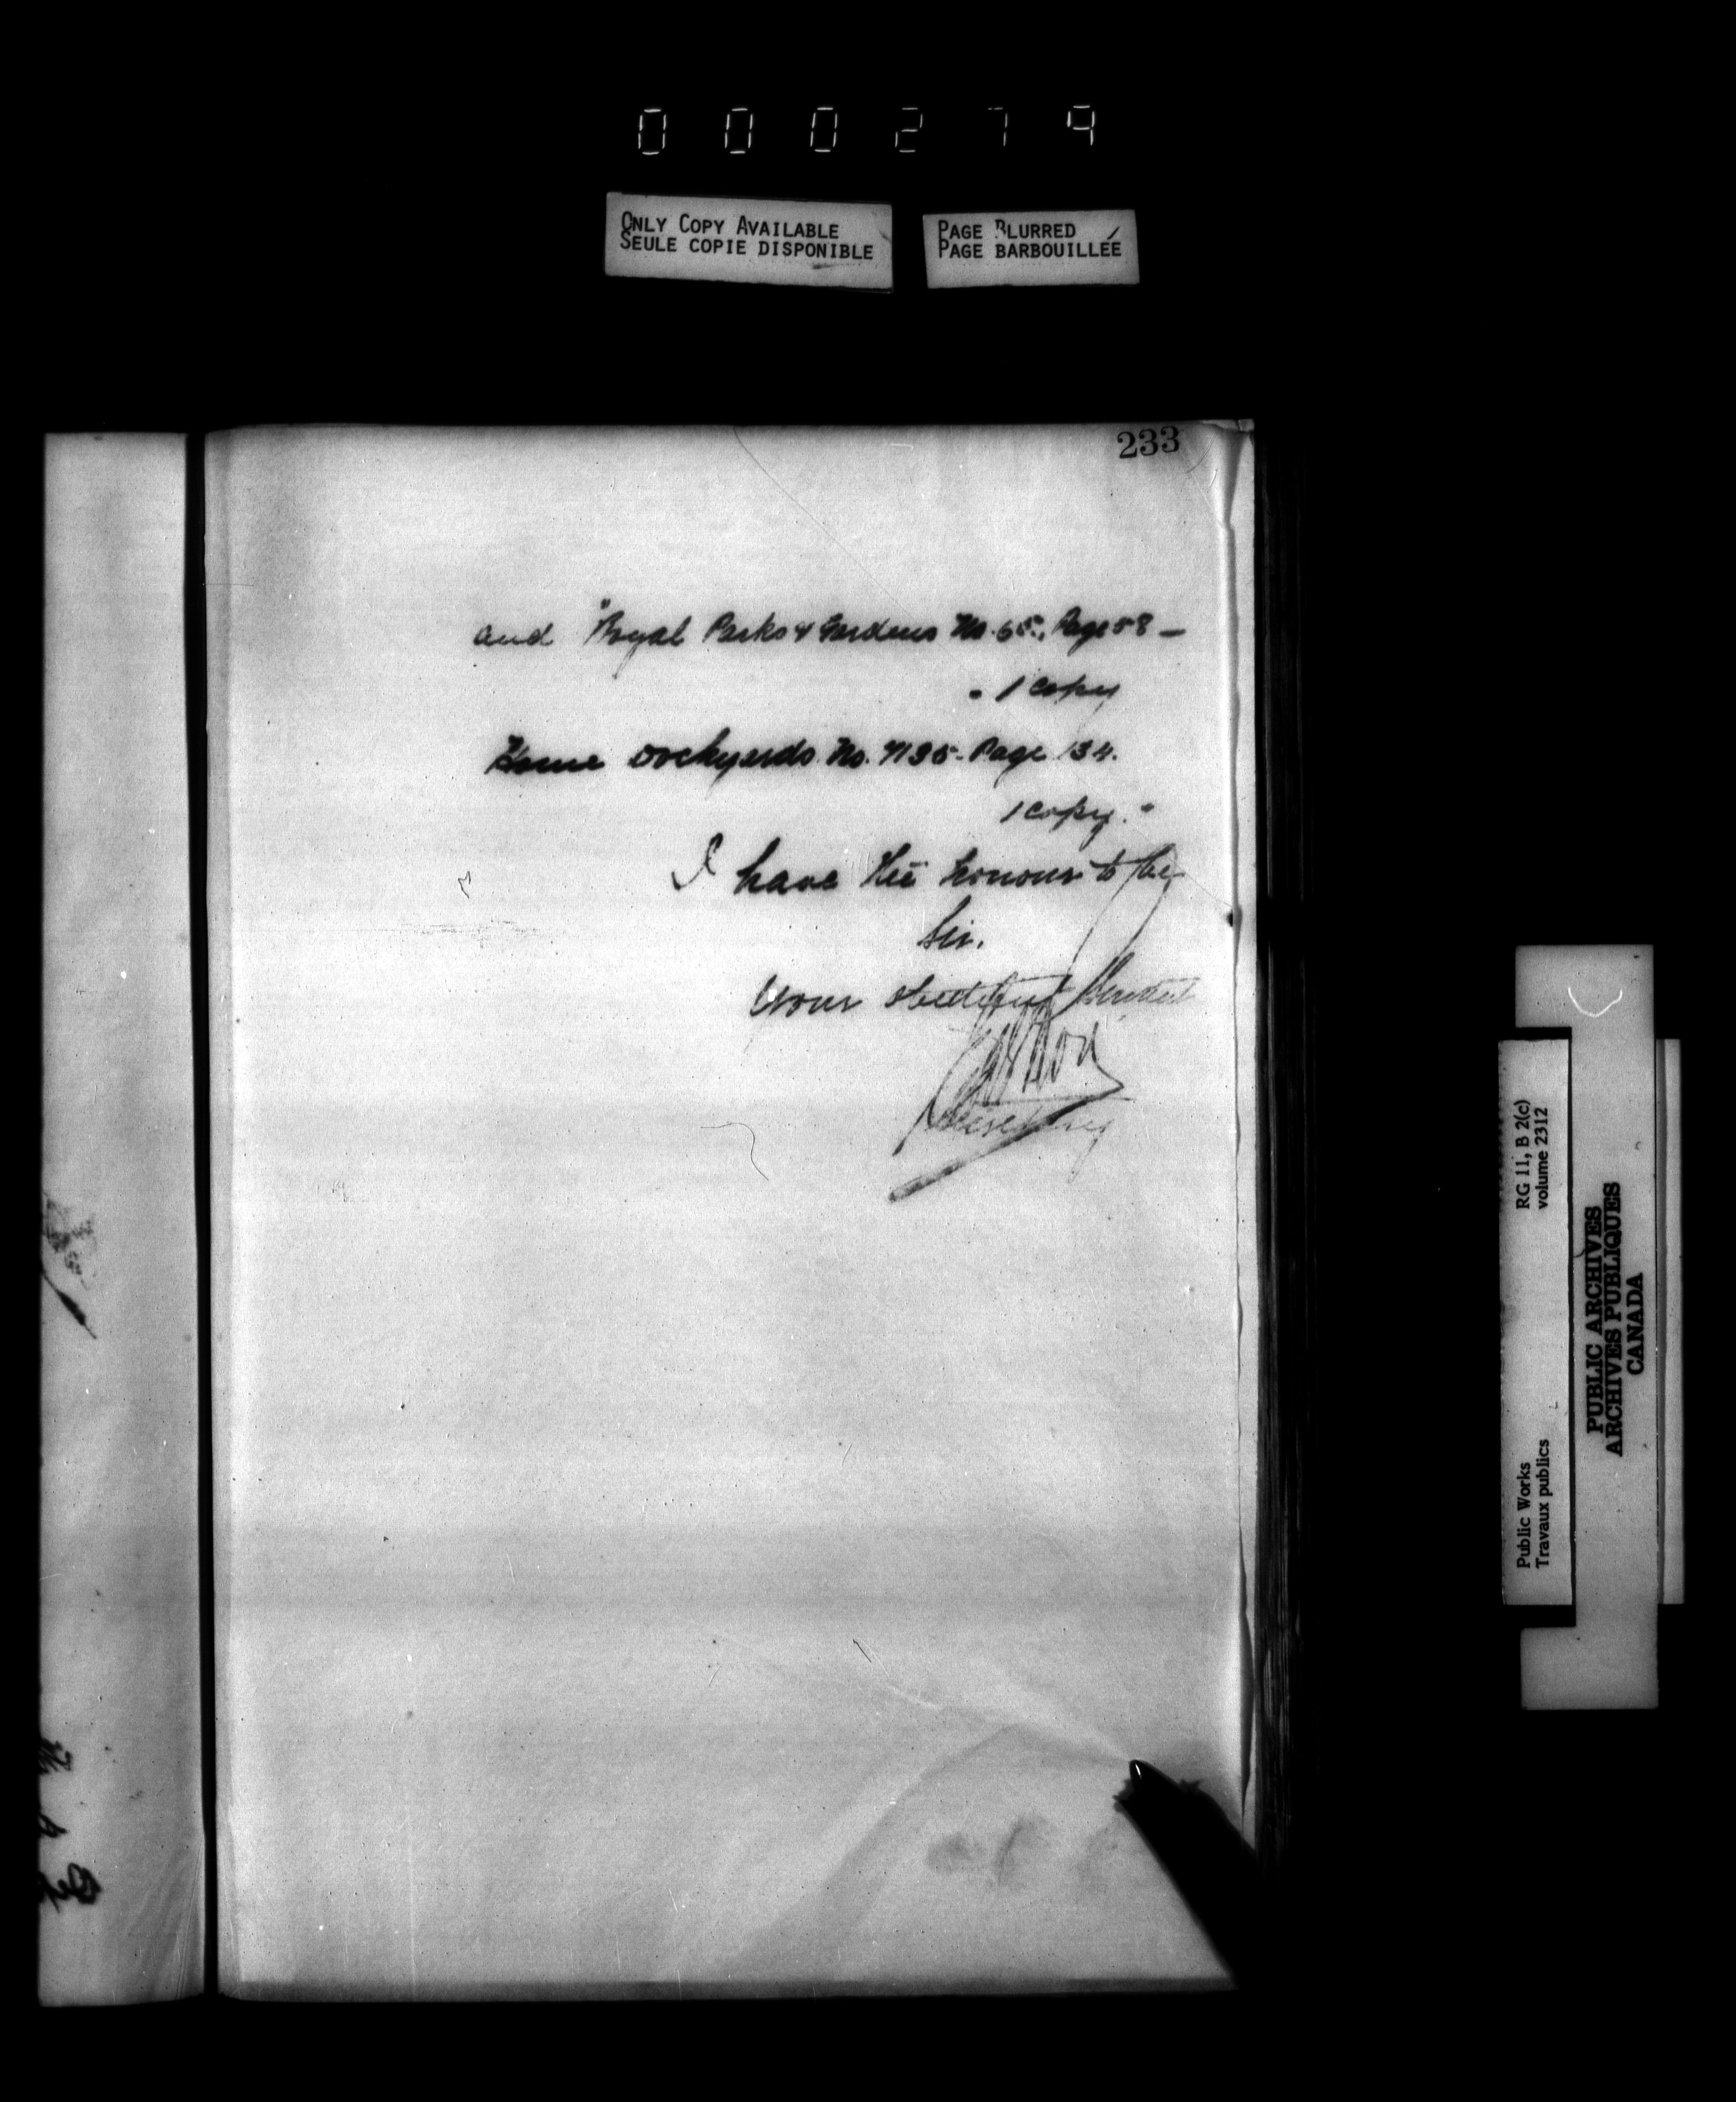 000279
ONLY COPY AVAILABLE
SEULE COPIE DISPONIBLE
PAGE BLURRED
PAGE BARBOUILLÉE
233
and "Royal Parks & Gardens No. 65., Page 58 —
. 1 copy
Home Dockyards. No. 7135 - Page 134.
1 copy."
I have the honour to be
Sir.
Your obedient Servant
Secretary
RG 11, B 2(c)
volume 2312
Public Works
Travaux publics
PUBLIC ARCHIVES
ARCHIVES PUBLIQUES
CANADA